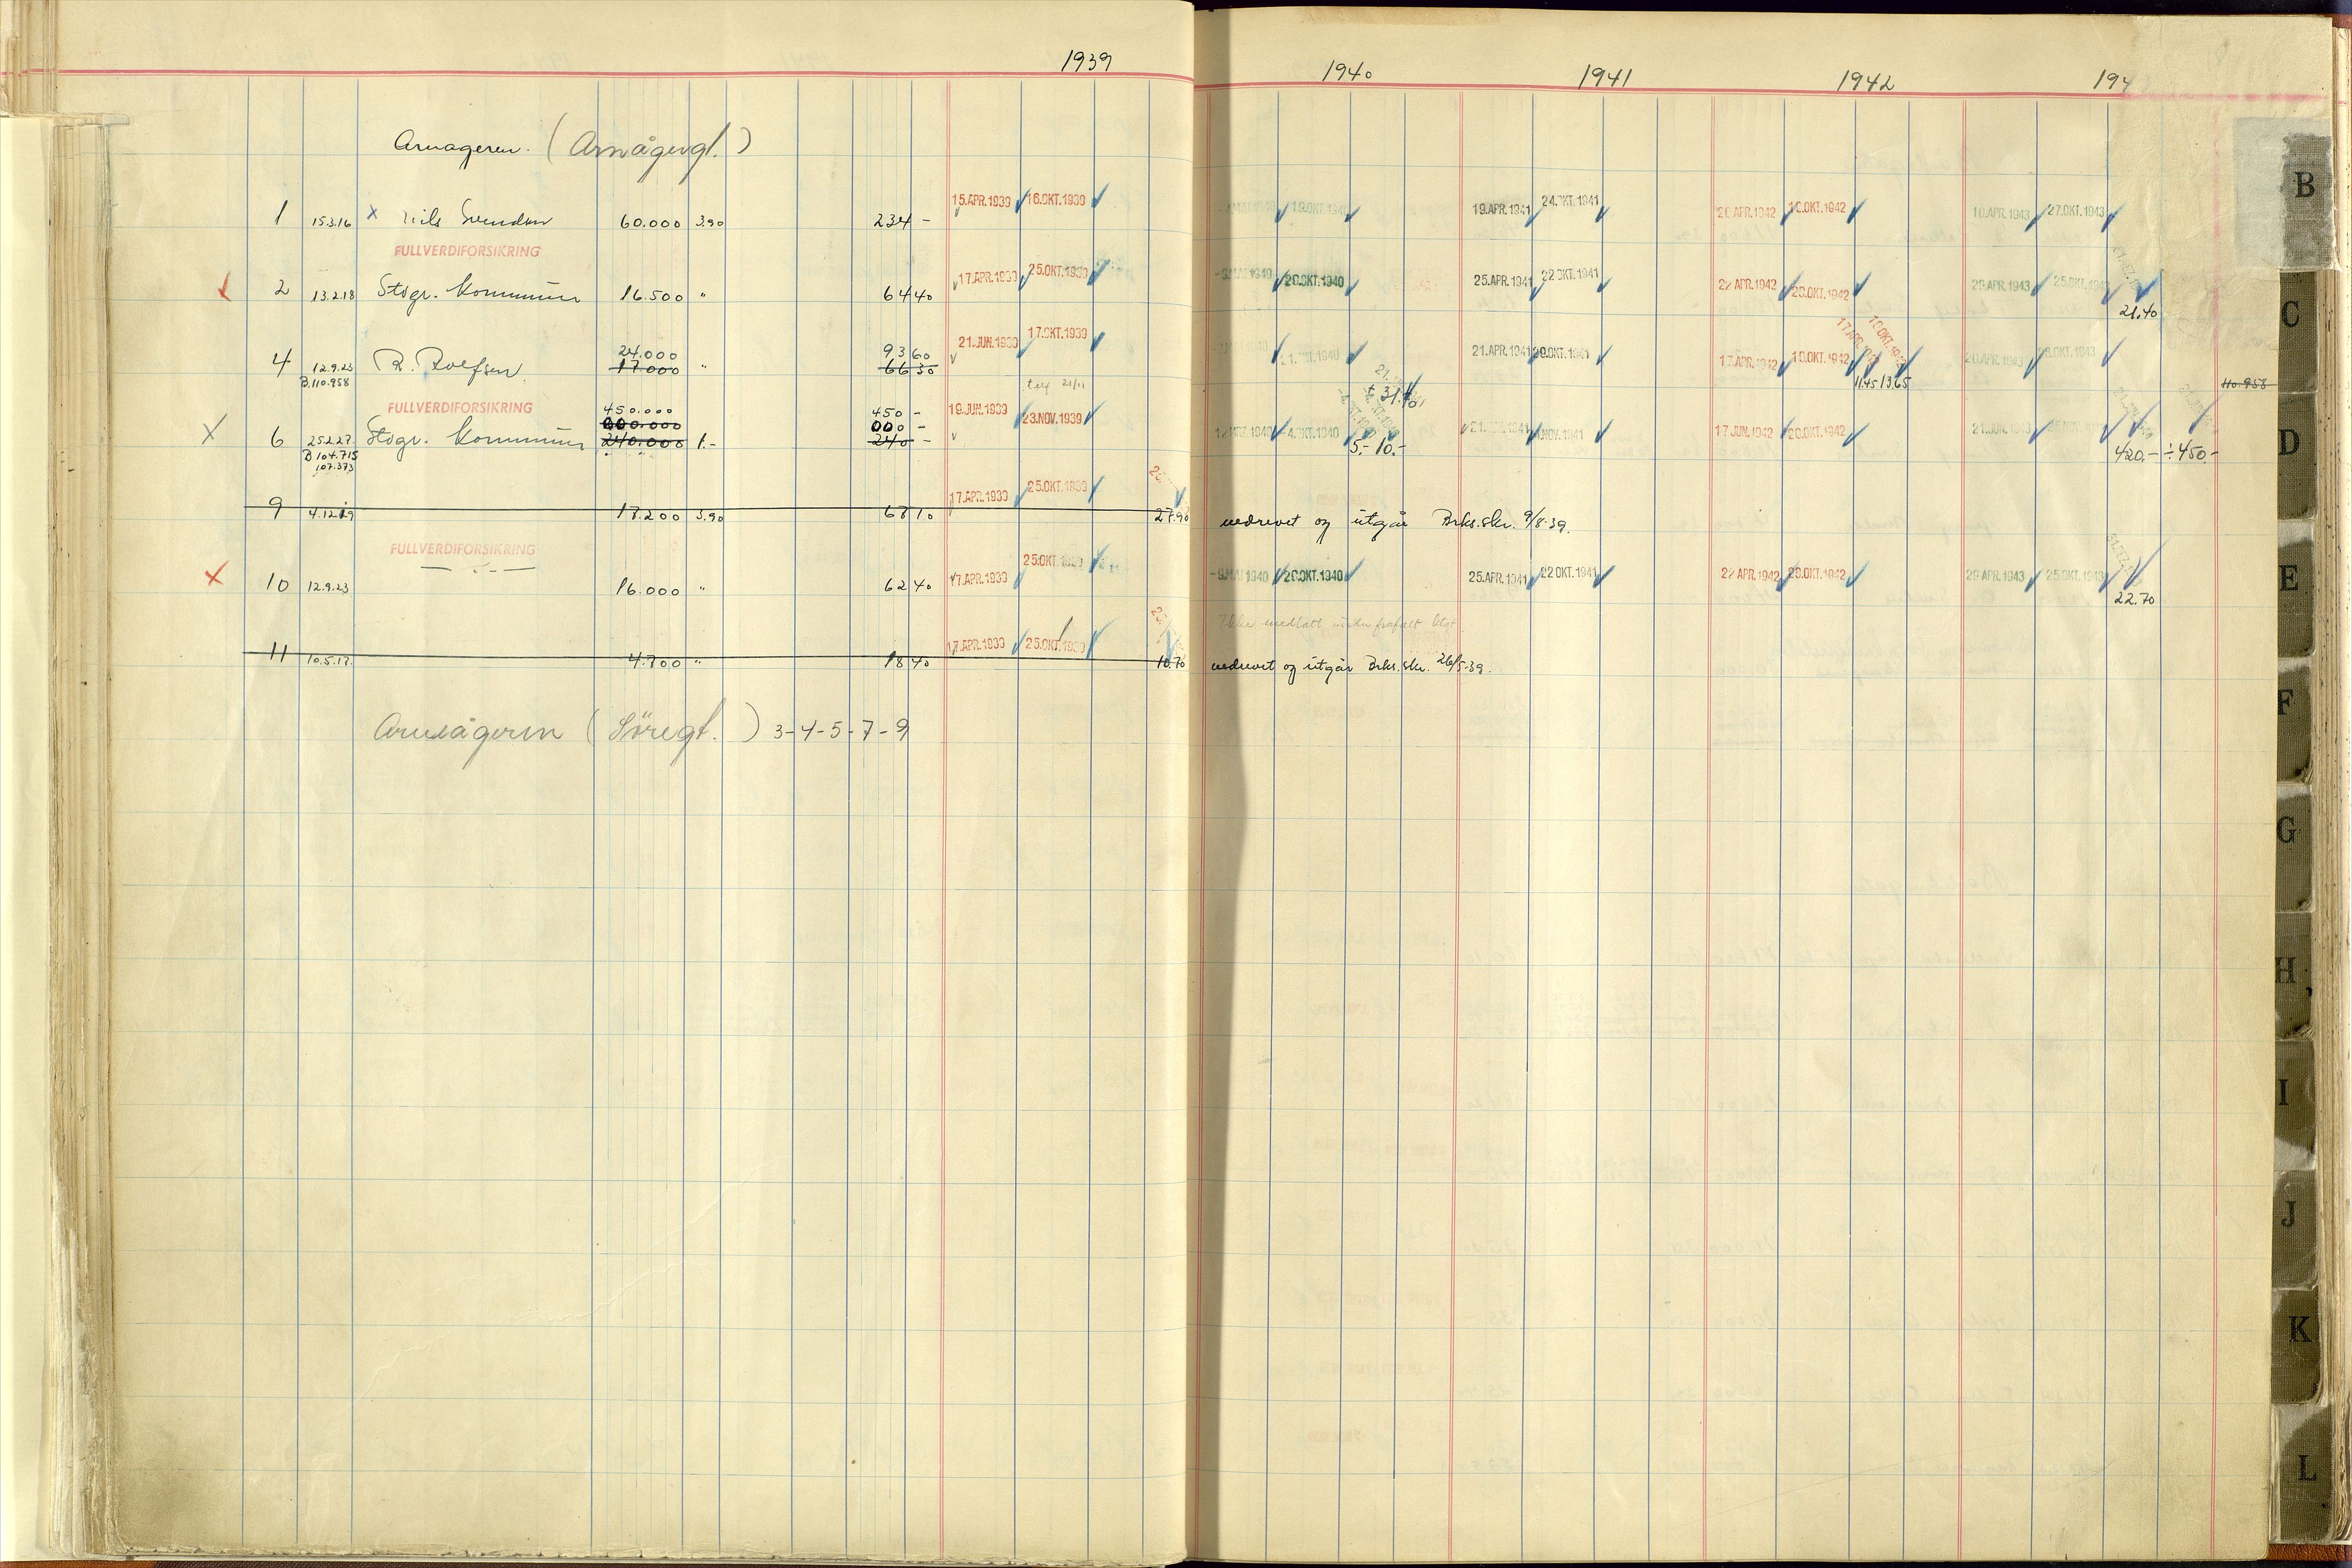 1939 1940 1941 1942 194
Arnageren. (Arnågengt.)
1 15.3.16 x Nils Svendsen 60.000 3.90 234 - 15.APR.1939 16.OKT.1939 19.OKT.1940 19.APR.1941 24.OKT.1941 20 APR.1942 1943 27.OKT.1943
FULLVERDIFORSIKRING
2 13.2.18 Stvgr. Kommune 16.500 " 64 40 17.APR.1939 25.OKT.1939 -8.MAI 1940 26.OKT.1940 25.APR.1941 22 OKT.1941 22 APR.1942 20.OKT.1942 29.APR.1943 25.OKT. 21.40
24.000 93 60
4 12.9.23 R. Roefsen 17.000 " 66 30 21.JUN.1939 17.OKT.1939 1940 21.APR.1941 20.OKT.1941 17.APR.1942 19.OKT.1942 20.APR.1943 OKT.1943
B.110.958 21/11 31.40 11.45 13.65 110.958
FULLVERDIFORSIKRING
450.000 450 -
000.000 000 -
6 25.2.27. Stvgr. Kommune 240.000 1.- 240 - 19.JUN.1939 23.NOV.1939 4.OKT.1940 NOV.1941 17 JUN.1942 20.OKT.1942 21.JUN.1943
B 104.715 5.- 10.- 420.- ÷450.-
107.373
9 4.12.19 17.200 3.90 67 10 17.APR.1939 25.OKT.1939 27.90 nedrevet og utgår Brks.skr. 9/8-39.
FULLVERDIFORSIKRING
10 12.9.23 — " — 16.000 " 62 40 17.APR.1939 25.OKT. -8.MAI 1940 26.OKT.1940 25.APR.1941 22 OKT.1941 22 APR.1942 20.OKT.1942 29 APR.1943 25.OKT.1943 22.70
Ikke medtatt
11 10.5.17. 4.700 " 18 40 17.APR.1939 25.OKT.1939 10.70 nedrevet og utgår Brks.skr. 26/5-39.
Arneågeren (Söregt.) 3-4-5-7-9
B
C
D
E
F
G
H
I
J
K
L